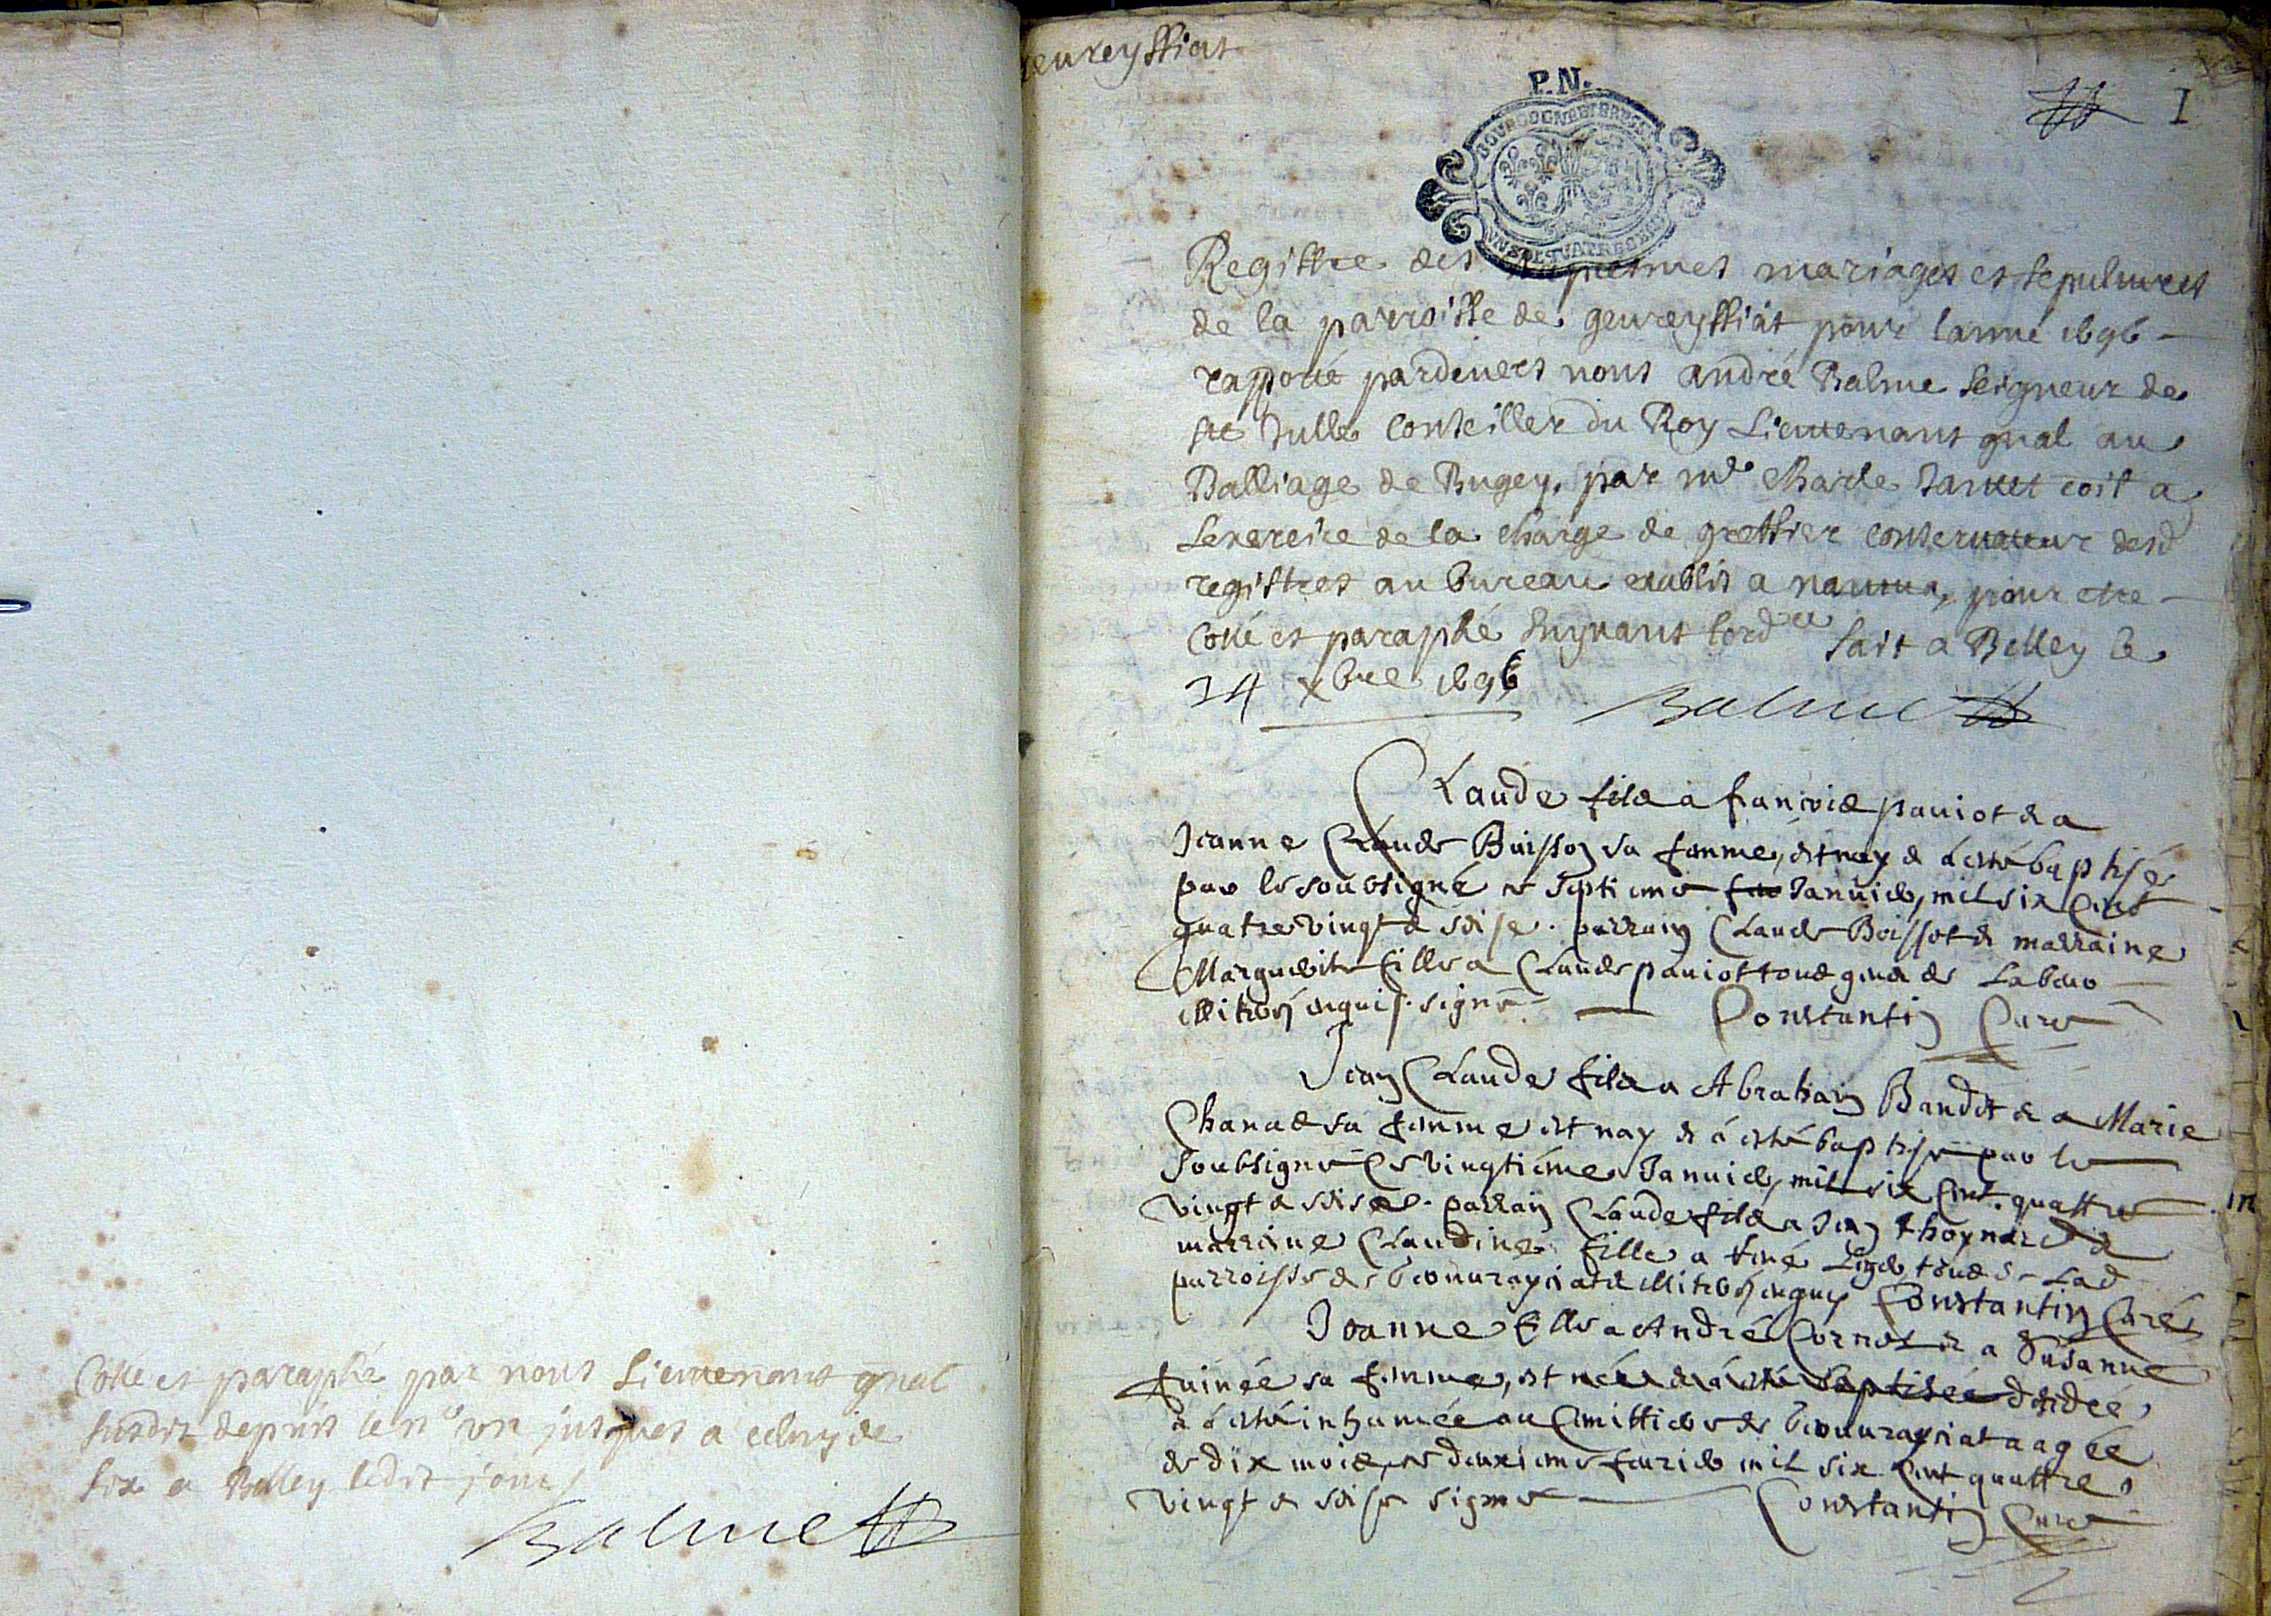 Cotté et paraphé par nous Lieutenant gnal
susdit depuis le n° un jusques a celuy de
six a Belley ledit jour
Balme
geureyssiat
P.N.
I
BOURGOGNE ET BRESSE
Registre des baptesmes mariages et sepulures
de la parroisse de geureyssiat pour lanné 1696
rapporté pardevers nous andré Balme seigneur de
ste Julle conseiller du Roy Lieutenant gnal au
Balliage de Bugey, par me Charle Janvet coit a
Lexercice de la charge de greffier conservateur desd
registres au bureau etablis a nantua, pour etre
Cotté et paraphé suyvant lordce fait a Belley le
14 xbre 1696 Balme
Claude fils a francois paviot & a
Jeanne Claude Buisson sa femme, est nay & a esté baptisé
par le soubsigné ce septieme Janvier, mil six cent
quatre vingt & seise. parrain Claude Boissot & marraine
Marguerite fille a Claude paviot tous
illiterés enquis. signé Constantin Curé
Jean Claude fils a Abraham Baudet & a Marie
Chanal sa femme est nay & a esté baptisé par le
soubsigné ce vingtiéme Janvier, mil six cent. quattre
vingt & seise. parrain Claude fils a Jean thoynard &
marraine Claudine fille a tous de Lad
parroisse de Geovrayciat & illiterés enquis Constantin Curé
Jeanne fille a André Cornet & a Susanne
sa femme, est née & a esté baptisée decedée
a esté inhumée au cimittiere de Geovrayciat aagée
de dix mois, ce deuxieme feurier mil six cent quattre
vingt & seise signé Constantin Curé